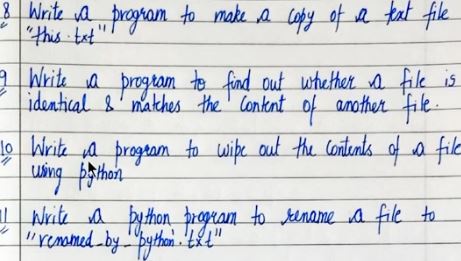 8 Write a program to make a copy of a text file
"this.txt"
9 Write a program to find out whether a file is
identical & matches the content of another file.
10 Write a program to wipe out the contents of a file
using python
11 Write a python program to rename a file to
"renamed_by_python.txt"